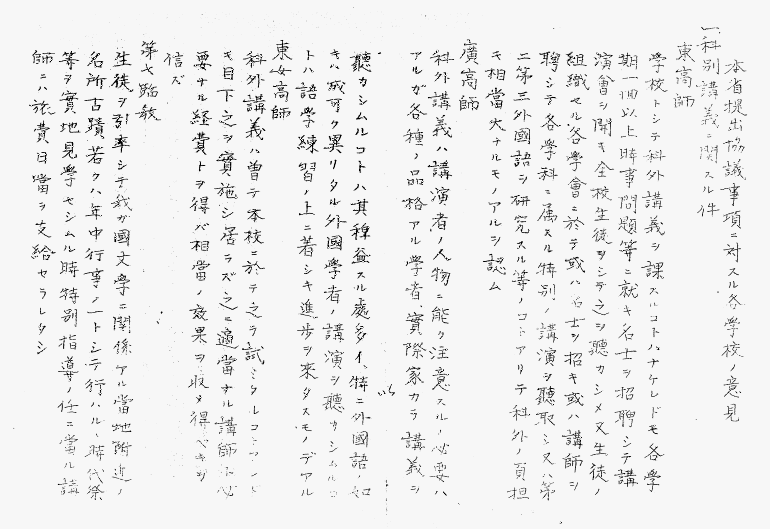 本省提出協議事項ニ対スル各学校ノ意見
一、科別講義ニ関スル件
東高師
学校トシテ科外講義ヲ課スルコトハナケレドモ各学
期一回以上時事問題等ニ就キ名士ヲ招聘シテ講
演會ヲ開キ全校生徒ヲシテ之ヲ聴カシメ又生徒ノ
組織セル各学會ニ於テ或ハ名士ヲ招キ或ハ講師ヲ
聘シテ各学科ニ属スル特別ノ講演ヲ聽取シ又ハ第
二第三外國語ヲ研究スル等ノコトアリテ科外ノ負担
モ相當大ナルモノアルヲ認ム
廣高師
科外講義ハ講演者ノ人物ニ能ク注意スルノ必要ハ
アルガ各種ノ品格アル學者、實際家カラ講義ヲ
聽カシムルコトハ其稗益スル處多イ、特ニ外國語ノ如
キハ成可ク異リタル外國學者ノ講演ヲ聽カシムルコ
トハ語學練習ノ上ニ著シキ進歩ヲ来タスモノデアル
東女高師
科外講義ハ曽テ本校ニ於テ之ヲ試ミタルコトアレド
モ目下之ヲ實施シ居ラズ之ニ適當ナル講師ト必
要ナル経費トヲ得バ相當ノ效果ヲ収メ得ベキヲ
信ズ
第七臨教
生徒ヲ引率シテ我ガ國文學ニ関係アル當地附近ノ
名所古蹟若クハ年中行事ノ一トシテ行ハルヽ時代祭
等ヲ實地見学セシムル時特別指導ノ任ニ當ル講
師ニハ旅費日當ヲ支給セラレタシ